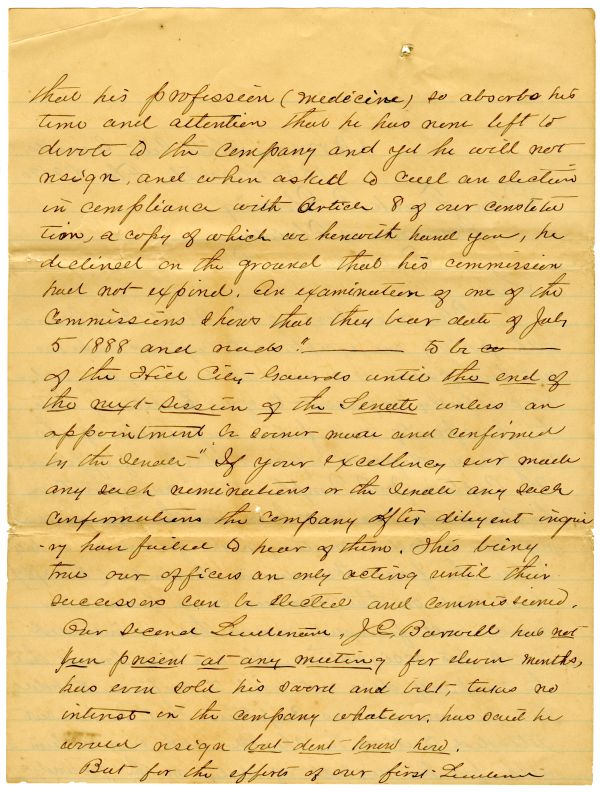 that his profession (medicine) so absorbs his
time and attention that he has none left to
devote to the company and yet he will not
resign, and when asked to call an election
in compliance with Article 8 of our constitu
tion, a copy of which we herewith hand you, he
declined on the ground that his commission
had not expired. An examination of one of the
Commissions shows that they bear date of July
5 1888 and reads "———— to be ———
of the Hill City Gaurds until the end of
the next session of the Senate unless an
appointment be sooner made and confirmed
by the Senate" If your excellency ever made
any such nominations or the Senate any such
confirmations the company after diligent inqui
-ry have failed to hear of them. This being
true our officers are only acting until their
successors can be elected and commissioned.
Our second Lieutenant, J.C. has not
been present at any meeting for eleven months,
has even sold his sword and belt, takes no
interest in the company whatever, has said he
would resign but dont know how.
But for the efforts of our first Lieutenant